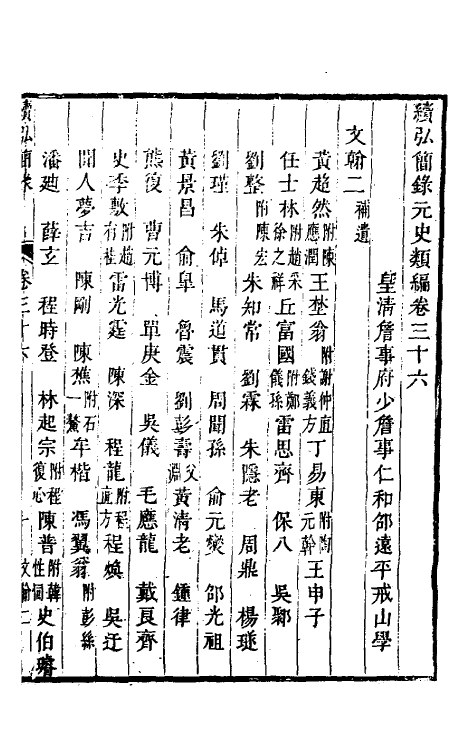 續弘簡錄元史類編卷三十六
皇清詹事府少詹事仁和邵遠平戒山學
文翰二補遺
黃超然附陳應潤 王埜翁附謝仲直錢義方 丁易東附陶元幹 王申子
任士林附趙采徐之祥 丘富國附鄭儀孫 雷思齊 保八 吳鄹
劉整附陳宏 朱知常 劉霖 朱隱老 周鼎 楊璲
劉瑾 朱倬 馬道貫 周聞孫 俞元燮 邵光祖
黃景昌 俞皐 魯震 劉彭壽父淵 黃清老 鍾律
熊復 曹元博 單庚金 吳儀 毛應龍 戴良齊
史季敷附趙有桂 雷光霆 陳深 程龍附程直方 程煥 吳迂
聞人夢吉 陳剛 陳樵附石一鰲 牟楷 馮翼翁附彭絲
潘廸 薛玄 程時登 林起宗附程復心 陳普附韓性同 史伯璿
續弘簡錄 卷三十六 文翰二